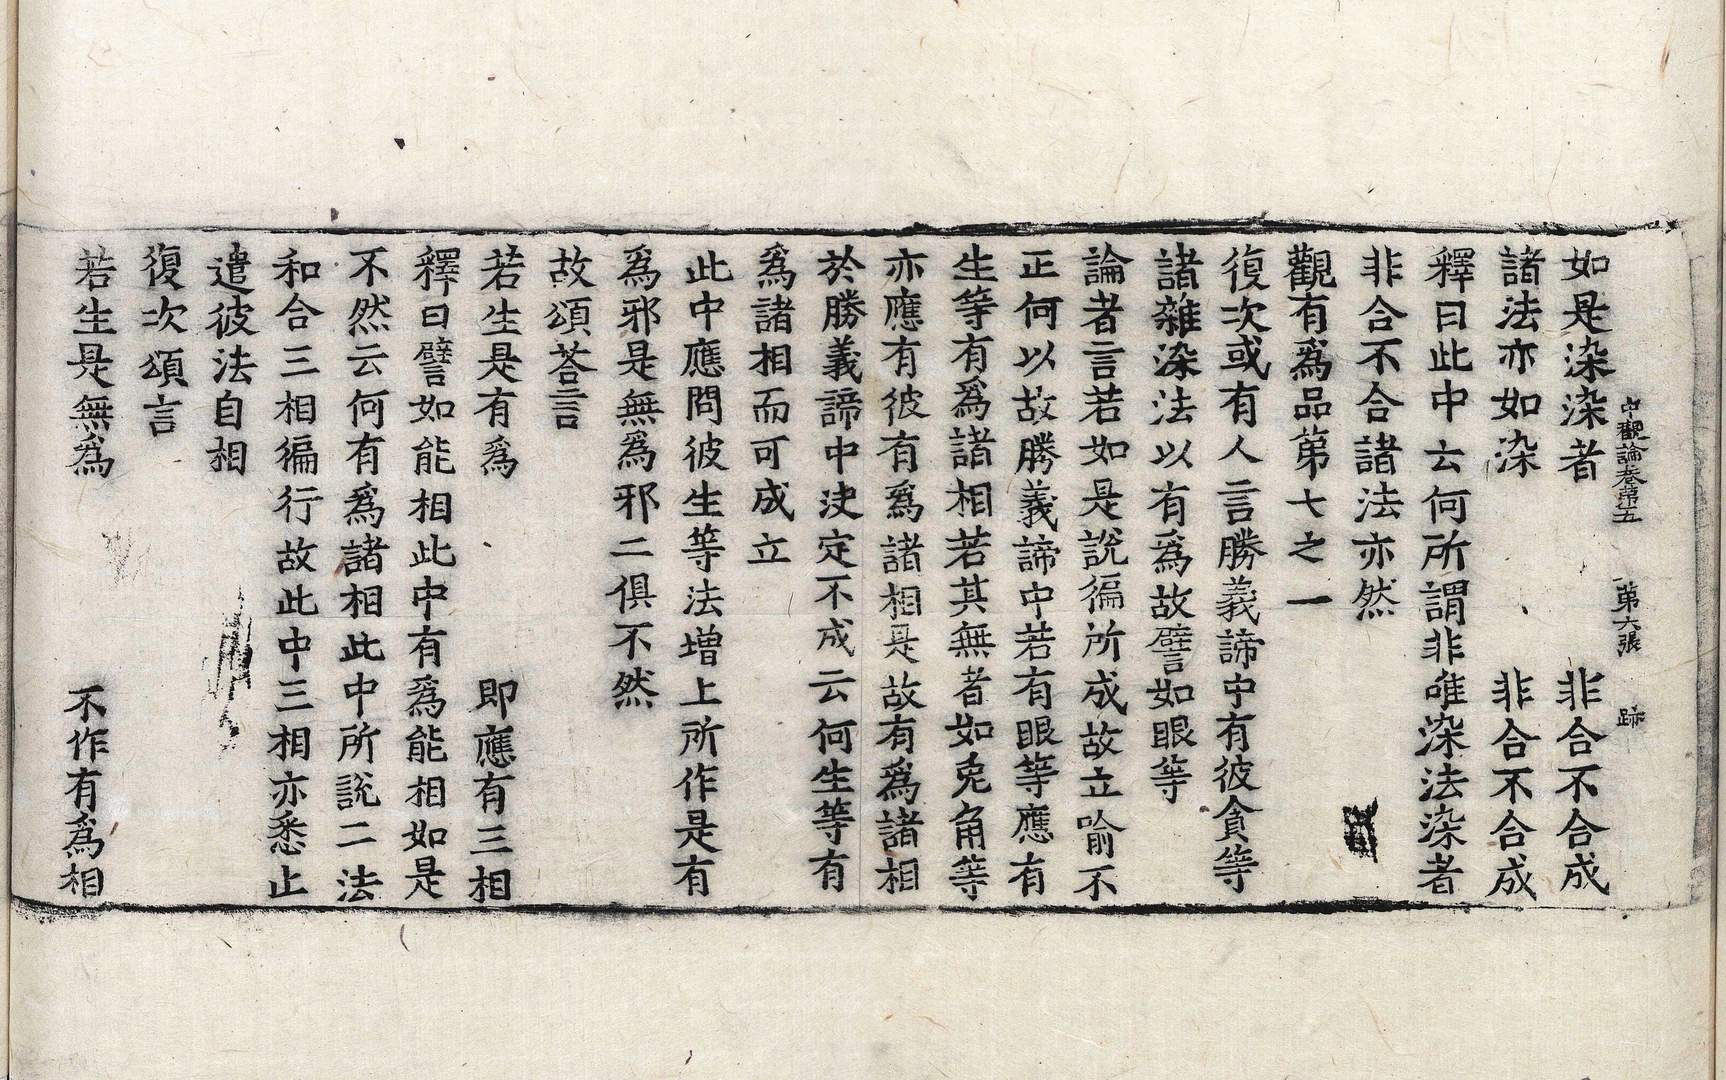 中觀論卷第五　第六張　跡
如是染染者　非合不合成
諸法亦如染　非合不合成
釋曰此中云何所謂非唯染法染者
非合不合諸法亦然
觀有爲品第七之一
復次或有人言勝義諦中有彼貪等
諸雜染法以有爲故譬如眼等
論者言若如是說徧所成故立喻不
正何以故勝義諦中若有眼等應有
生等有爲諸相若其無者如兔角等
亦應有彼有爲諸相是故有爲諸相
於勝義諦中決定不成云何生等有
爲諸相而可成立
此中應問彼生等法增上所作是有
爲邪是無爲邪二俱不然
故頌荅言
若生是有爲　即應有三相
釋曰譬如能相此中有爲能相如是
不然云何有爲諸相此中所說二法
和合三相徧行故此中三相亦悉止
遣彼法自相
復次頌言
若生是無爲　不作有爲相